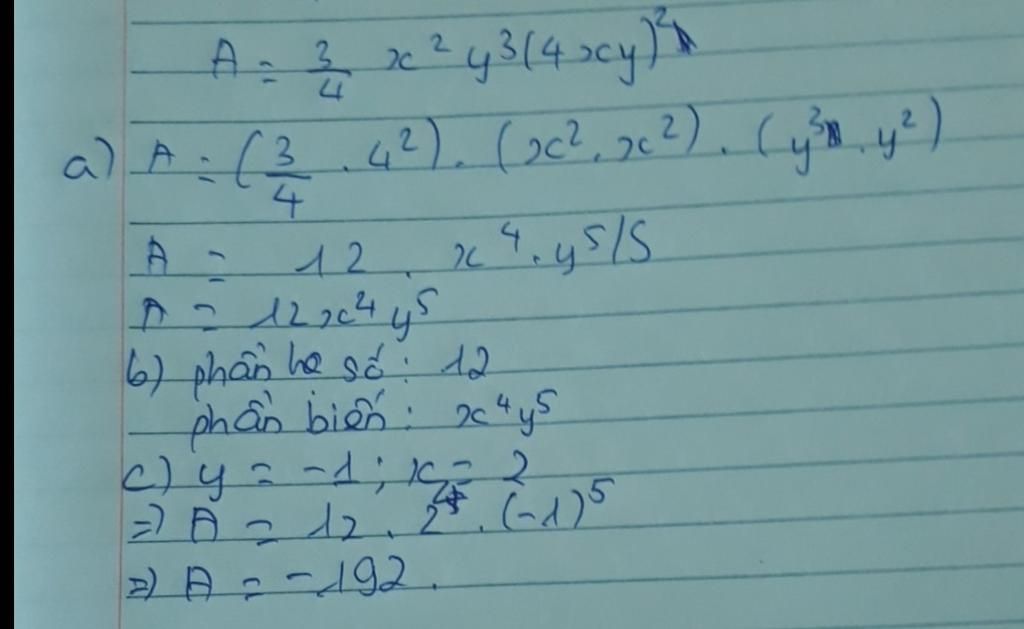 A = 3/4 x² y³(4xy)²
a) A = (3/4 . 4²) . (x² . x²) . (y³ . y²)
A = 12 . x⁴ . y⁵/5
A = 12x⁴y⁵
b) phần hệ số : 12
phần biến : x⁴y⁵
c) y = -1 ; x = 2
=) A = 12 . 2⁴ . (-1)⁵
=) A = -192 .